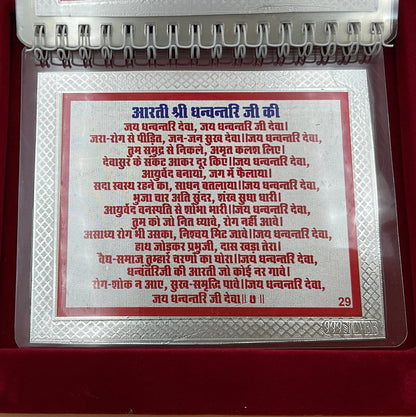 आरती श्री धन्वन्तरि जी की
जय धन्वन्तरि देवा, जय धन्वन्तरि जी देवा।
जरा-रोग से पीड़ित, जन-जन सुख देवा॥जय धन्वन्तरि देवा,
तुम समुद्र से निकले, अमृत कलश लिए।
देवासुर के संकट आकर दूर किए॥जय धन्वन्तरि देवा,
आयुर्वेद बनाया, जग में फैलाया।
सदा स्वस्थ रहने का, साधन बतलाया॥जय धन्वन्तरि देवा,
भुजा चार अति सुंदर, शंख सुधा धारी।
आयुर्वेद वनस्पति से शोभा भारी॥जय धन्वन्तरि देवा,
तुम को जो नित ध्यावे, रोग नहीं आवे।
असाध्य रोग भी उसका, निश्चय मिट जावे॥जय धन्वन्तरि देवा,
हाथ जोड़कर प्रभुजी, दास खड़ा तेरा।
वैद्य-समाज तुम्हारे चरणों का घेरा॥जय धन्वन्तरि देवा,
धन्वंतरिजी की आरती जो कोई नर गावे।
रोग-शोक न आए, सुख-समृद्धि पावे॥जय धन्वन्तरि देवा,
जय धन्वन्तरि जी देवा॥ ७ ॥
29
999 SILVER